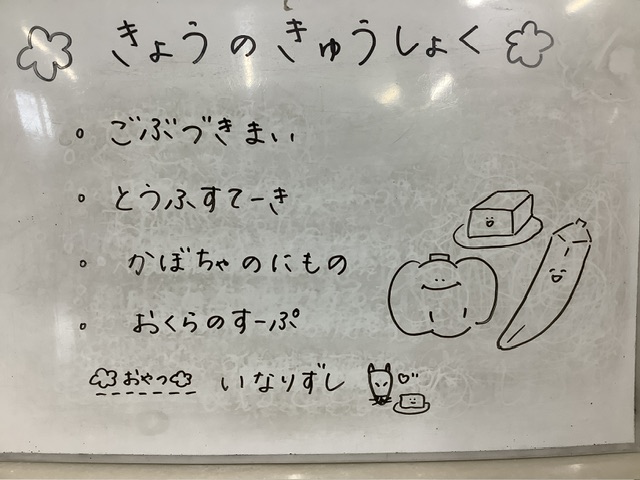 きょうのきゅうしょく
ごぶづきまい
とうふすてーき
かぼちゃのにもの
おくらのすーぷ
おやつ いなりずし